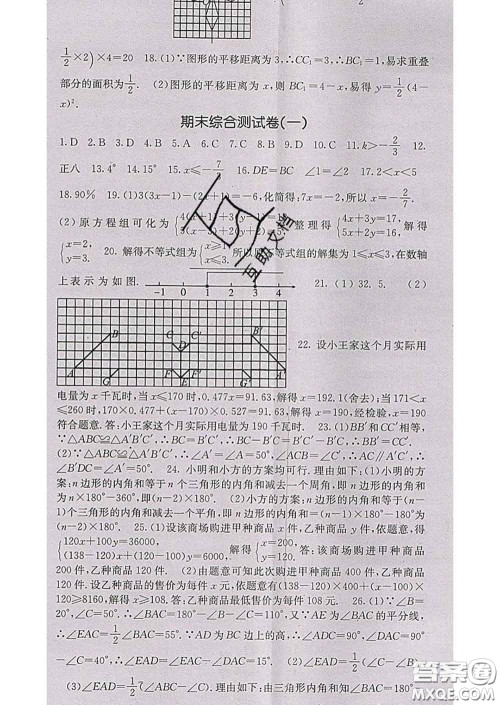 1/2×2)×4=20 18.(1)∵图形的平移距离为3,∴CC₁=3,∴BC₁=1,易求重叠
部分的面积为1/2. (2)图形的平移距离为x,则BC₁=4-x,易得y=1/2(4-
x)².
期末综合测试卷(一)
1.D 2.B 3.D 4.B 5.A 6.C 7.C 8.B 9.D 10.C 11.k>-2/3 12.
正八 13.4° 14.15° 15.x≤-7/3 16.DE=BC ∠1=∠2 17.2<x<5
18.90% 19.(1)3(3x-1)-2(
=-6,化简得:7x=-2,所以x=-2/7.
(2)原方程组可化为
整理得{4x+3y=17, 3x-2y=6. 解得
{x=2, y=3. 20.解得不等式组为{x≥1, x≤3. 所以
组的解集为1≤x≤3,在数轴
上表示为如图. -1 0 1 3 4 21.(1)32.5. (2)
A B C D E F G A′ B′ G′
22.设小王家这个月实际用
电量为x千瓦时,当x≤170时,0.477x=91.63,解得x=192.1(舍去);当171<x
≤260时,170×0.477+(x-170)×0.527=91.63,解得x=190,经检验,x=190
符合题意.答:小王家这个月实际用电量为190千瓦时. 23.(1)BB′和CC′相等.
∵△ABC≌△A′B′C′,∴BC=B′C′,∴BC-B′C=B′C′-B′C,∴BB′=CC′.
(2)∵△ABC≌△A′B′C′,∴∠A=∠A′=50°,∠ACB=∠C′,∴AC∥A′C′,∴
∠B′DC=∠A′=50°. 24.小明和小方的方案均可行.理由如下:(1)小明的方
案:n边形的内角和等于n个三角形的内角和减去一个周角,即n边形的内角和
为n×180°-360°,即(n-2)×180°. (2)小方的方案:n边形的内角和等于(n-
1)个三角形的内角和减去一个平角,即n边形的内角和=(n-1)×180°-180°=
(n-2)×180°. 25.(1)设该商场购进甲种商品x件,乙种商品y件,依题意,得
{120x+100y=36000, (138-120)x+(120-100)y=6000. 解得{x=200, y=120. 答:该商场购进甲种商品
200件,乙种商品120件. (2)由题意可知此次购进甲种商品400件,乙种商品
120件.设乙种商品的售价为每件x元,依题意有(138-120)×400+(x-100)×
120≥8160,解得x≥108.答:乙种商品最低售价为每件108元. 26.(1)∵∠B=
20°,∠C=50°,∴∠BAC=180°-∠B-∠C=110°,又∵AE为∠BAC的平分线,
∴∠EAC=1/2∠BAC=55°.∵AD为BC边上的高,∴∠ADC=90°,∴∠DAC=90°
-∠C=40°,∴∠EAD=∠EAC-∠DAC=15°. (2)∠EAD=1/2(∠C-∠B).
(3)∠EAD=1/2(∠C-∠B).理由如下:由三角形内角和知∠BAC=180°
互助文档
答案圈
MXQE.COM